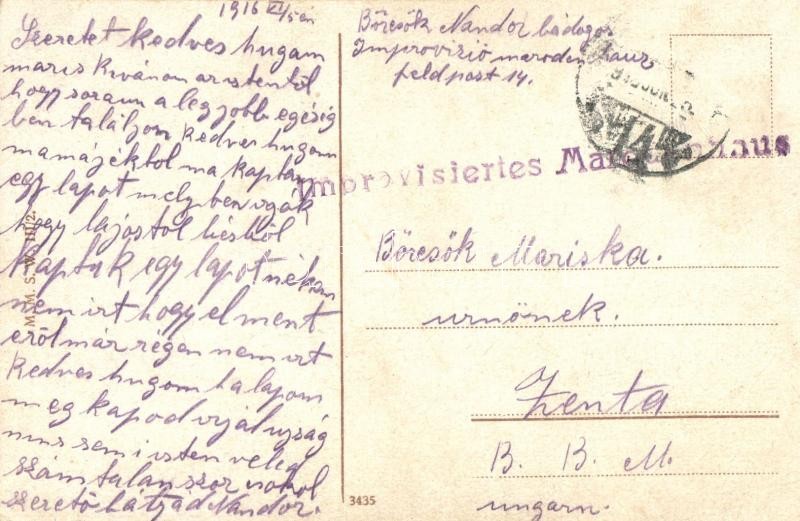 1916 XI/5 én
Szeretet kedves hugam
maris kivánom az istentöl
hogy soraim a leg jobb egésig
ben találjon kedves hugom
mamájéktol ma kaptam
egy lapot mely ben irják
hogy lajostol bésböl
kaptak egy lapot nékem
nem irt hogy el ment
eröl már régen nem irt
kedves hugom ha lapom
meg kapod irjál ujság
nins semi isten veled
szám talan szor
szeretö bátyád Nandor.
M. M. S. W. III/2.
Börcsök Nandor bádogos
Improvizió maroden
feldpost 14.
Improvisiertes
Börcsök Mariska.
urnönek.
Zenta
B. B. M.
ungarn.
3435